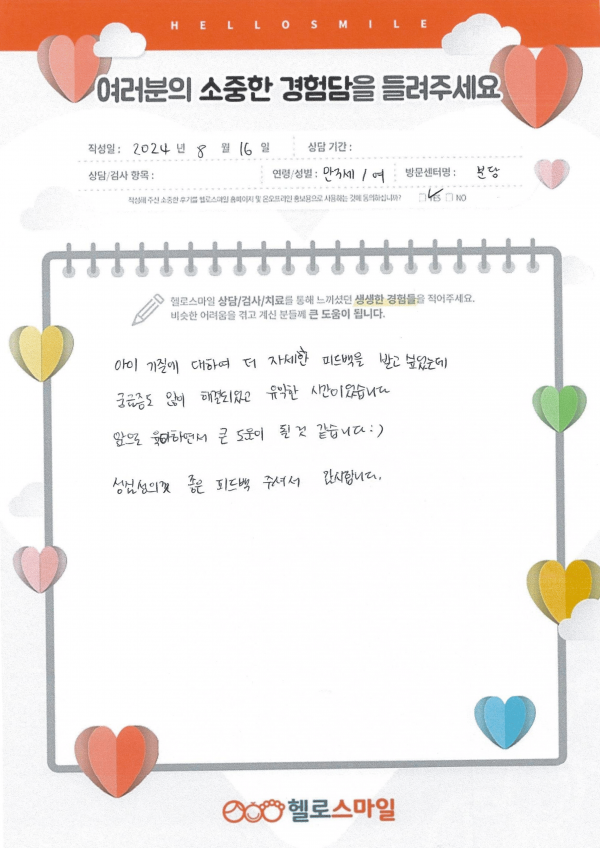 HELLOSMILE
여러분의 소중한 경험담을 들려주세요
작성일 : 2024 년 8 월 16 일 상담 기간 :
상담/검사 항목 : 연령/성별 : 만3세 / 여 방문센터명 : 분당
작성해 주신 소중한 후기를 헬로스마일 홈페이지 및 온오프라인 홍보용으로 사용하는 것에 동의하십니까? YES NO
헬로스마일 상담/검사/치료를 통해 느끼셨던 생생한 경험들을 적어주세요.
비슷한 어려움을 겪고 계신 분들께 큰 도움이 됩니다.
아이 기질에 대하여 더 자세한 피드백을 받고 싶었는데
궁금증도 많이 해결되었고 유익한 시간이었습니다
앞으로 육아하면서 큰 도움이 될 것 같습니다:)
성심성의껏 좋은 피드백 주셔서 감사합니다.
헬로스마일